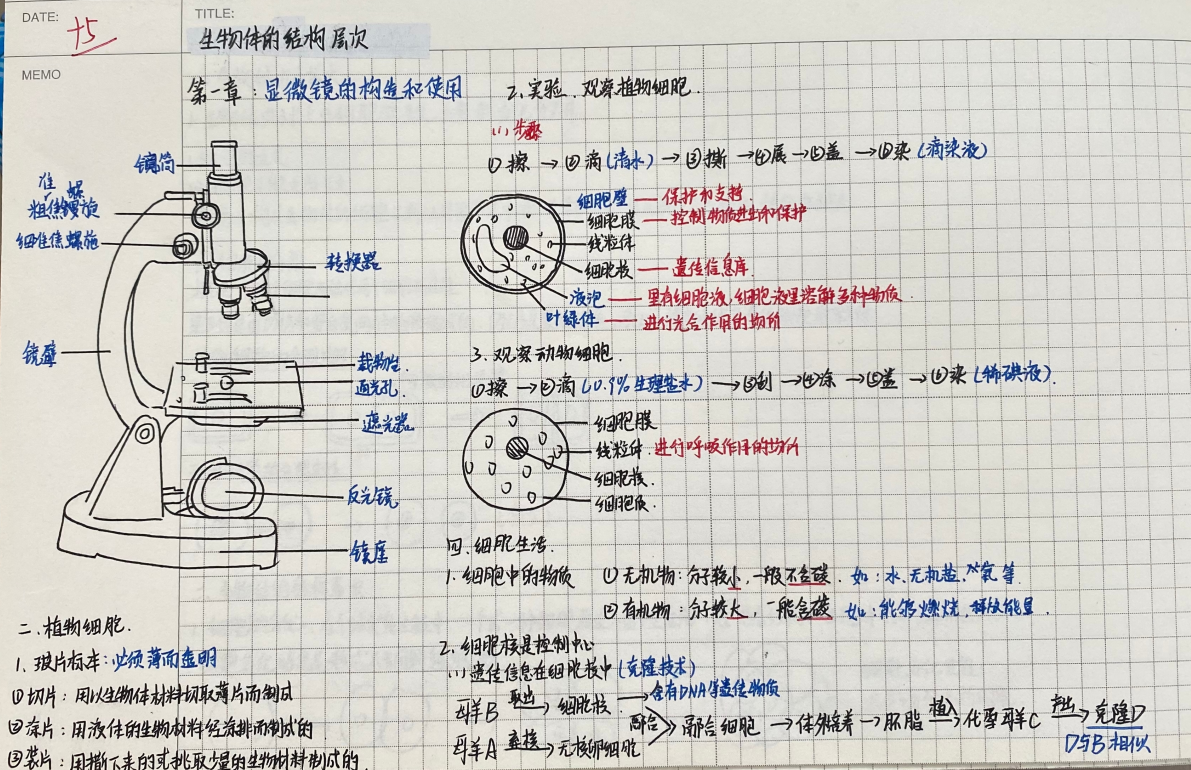 DATE:
+5
TITLE:
生物体的结构层次
MEMO
第一章：显微镜的构造和使用
镜筒
准 螺
粗焦螺旋
细准焦螺旋
转换器
镜臂
载物台.
通光孔.
遮光器
反光镜
镜座
二.植物细胞.
1. 玻片标本：必须薄而透明
①切片：用以生物体材料切取薄片而制成
②涂片：用液体的生物材料经涂排而制成的
③装片：用撕下来的或挑取少量的生物材料制成的.
2.实验.观察植物细胞.
(1)步骤
①擦→②滴(清水)→③撕→④展→⑤盖→⑥染(滴染液)
细胞壁——保护和支持
细胞膜——控制物质进出和保护
线粒体
细胞核——遗传信息库.
液泡——里有细胞液,细胞液里溶解多种物质.
叶绿体——进行光合作用的场所
3.观察动物细胞.
①擦→②滴(0.9%生理盐水)→③刮→④涂→⑤盖→⑥染(稀碘液).
细胞膜
线粒体.进行呼吸作用的场所
细胞核.
细胞质.
四.细胞生活.
1.细胞中的物质 ①无机物：分子较小,一般不含碳.如：水.无机盐.氧等.
②有机物：分子较大,一般含碳 如：能够燃烧,释放能量.
2.细胞核是控制中心
(1)遗传信息在细胞核中(克隆技术)
母羊B 取出→ 细胞核.→含有DNA等遗传物质
母羊A 去核→ 无核卵细胞
融合 融合细胞→体外培养→胚胎 植入→ 代孕母羊C 产出→ 克隆D
D与B相似